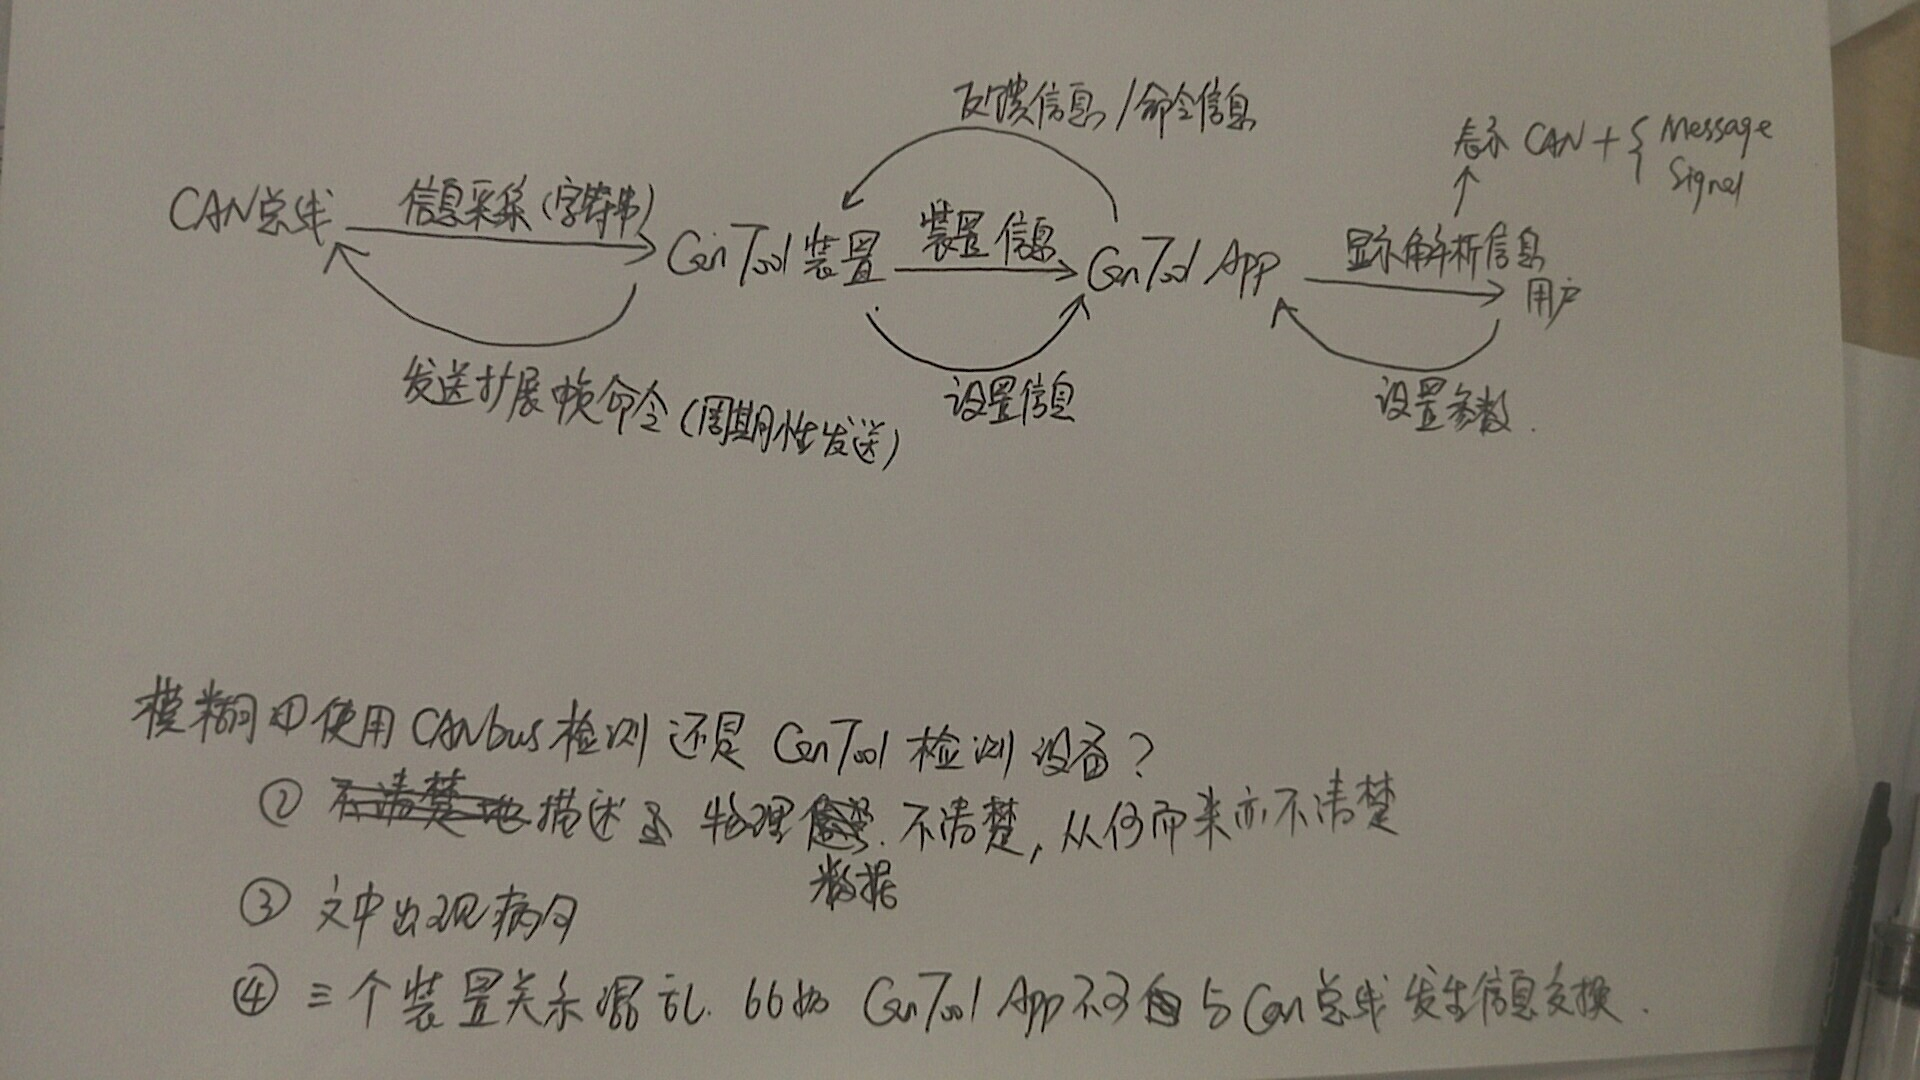 反馈信息/命令信息
表示 CAN + { Message
Signal
CAN总线
信息采集(字符串)
CanTool 装置
装置信息
CanTool App
显示解析信息
用户
发送扩展帧命令(周期性发送)
设置信息
设置参数.
模糊 ① 使用 CANbus 检测 还是 CanTool 检测设备?
② 不清楚地 描述 物理 不清楚, 从何而来亦不清楚
数据
③ 文中出现病句
④ 三个装置关系混乱. 比如 CanTool App 不可 与 Can总线 发生信息交换.